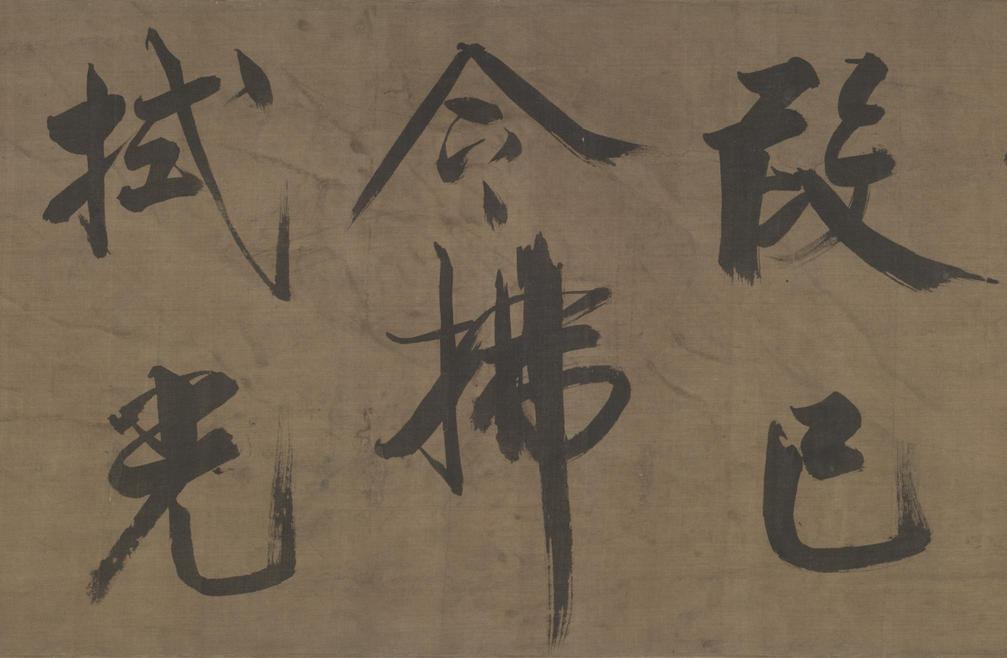 段已
令拂
拭光